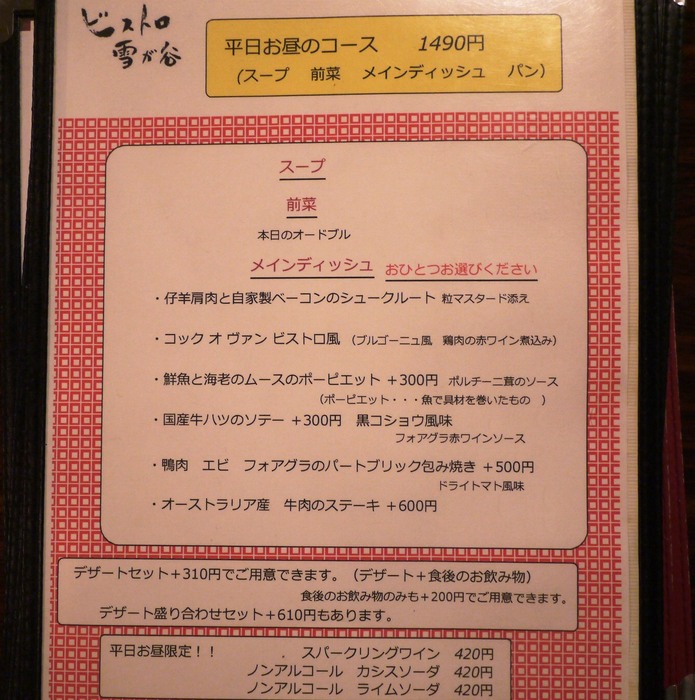 ビストロ
雪が谷
平日お昼のコース　1490円
(スープ　前菜　メインディッシュ　パン)
スープ
前菜
本日のオードブル
メインディッシュ　おひとつお選びください
・仔羊肩肉と自家製ベーコンのシュークルート 粒マスタード添え
・コック オ ヴァン ビストロ風 (ブルゴーニュ風　鶏肉の赤ワイン煮込み)
・鮮魚と海老のムースのポーピエット +300円　ポルチーニ茸のソース
(ポーピエット・・・魚で具材を巻いたもの　)
・国産牛ハツのソテー +300円　黒コショウ風味
フォアグラ赤ワインソース
・鴨肉　エビ　フォアグラのパートブリック包み焼き +500円
ドライトマト風味
・オーストラリア産　牛肉のステーキ +600円
デザートセット+310円でご用意できます。(デザート+食後のお飲み物)
食後のお飲み物のみも+200円でご用意できます。
デザート盛り合わせセット+610円もあります。
平日お昼限定！！　.　スパークリングワイン　420円
ノンアルコール　カシスソーダ　420円
ノンアルコール　ライムソーダ　420円